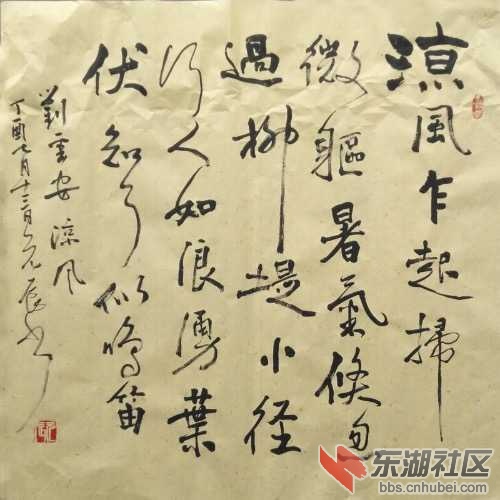 涼風乍起掃
微軀暑氣倏忽
過柳堤小径
行人如浪湧葉
伏知了似鳴笛
劉雲安 涼風
丁酉七月十三日
东湖社区
bbs.cnhubei.com